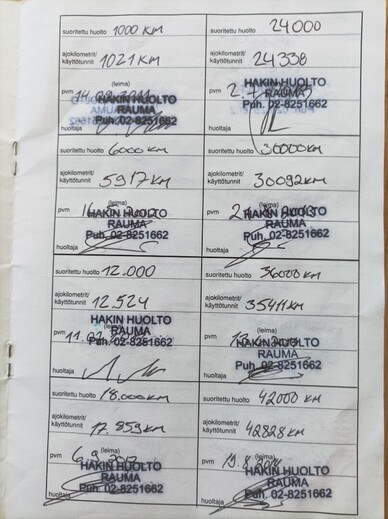 suoritettu huolto 1000 KM
ajokilometrit/
käyttötunnit 1021 KM
pvm (leima)
HAKIN HUOLTO
RAUMA
Puh. 02-8251662
huoltaja
suoritettu huolto 6000 KM
ajokilometrit/
käyttötunnit 5917 KM
pvm (leima)
HAKIN HUOLTO
RAUMA
Puh. 02-8251662
huoltaja
suoritettu huolto 12.000
ajokilometrit/
käyttötunnit 12.524
pvm (leima)
HAKIN HUOLTO
RAUMA
Puh. 02-8251662
huoltaja
suoritettu huolto 18.000 KM
ajokilometrit/
käyttötunnit 17.959 KM
pvm (leima)
HAKIN HUOLTO
RAUMA
Puh. 02-8251662
huoltaja
suoritettu huolto 24000
ajokilometrit/
käyttötunnit 24338
pvm
HAKIN HUOLTO
RAUMA
Puh. 02-8251662
huoltaja
suoritettu huolto 30000 KM
ajokilometrit/
käyttötunnit 30092 KM
pvm (leima)
HAKIN HUOLTO
RAUMA
Puh. 02-8251662
huoltaja
suoritettu huolto 36000 KM
ajokilometrit/
käyttötunnit 35411 KM
pvm (leima)
HAKIN HUOLTO
RAUMA
Puh. 02-8251662
huoltaja
suoritettu huolto 42000 KM
ajokilometrit/
käyttötunnit 42828 KM
pvm (leima)
HAKIN HUOLTO
RAUMA
Puh. 02-8251662
huoltaja